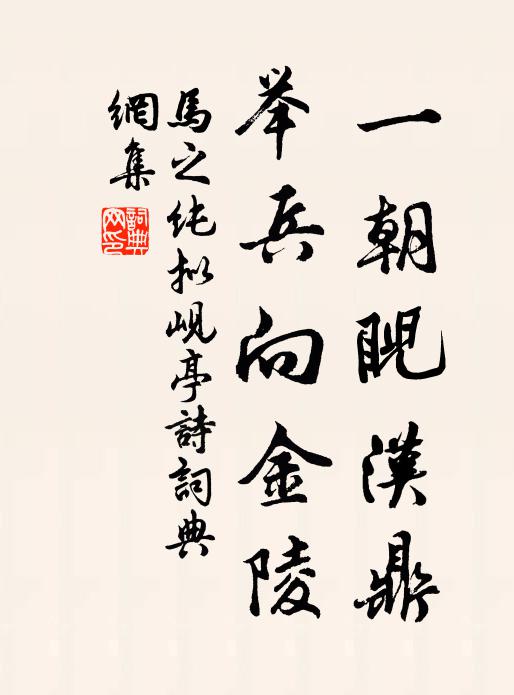 一朝睨漢鼎
举兵向金陵
馬之纯拟岘亭詩詞典
網集
詞典網印